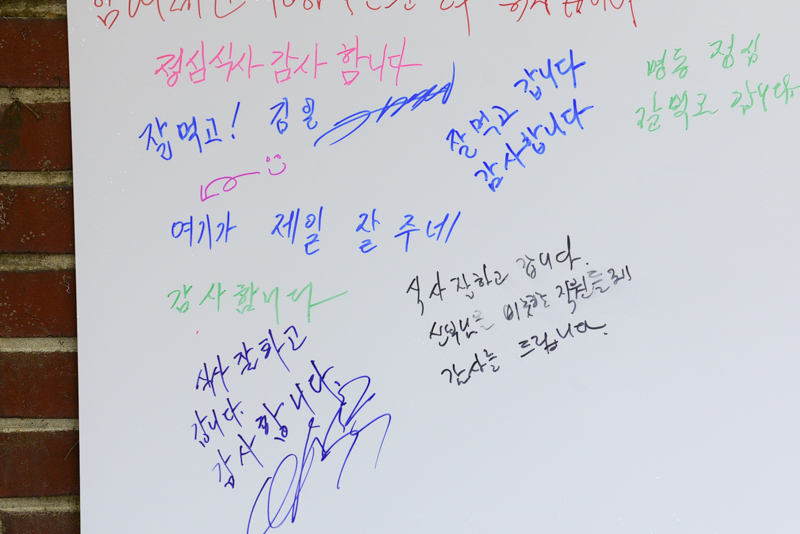 점심식사 감사 합니다
잘 먹고! 김일
잘 먹고 갑니다
감사합니다
명동 점심
잘 먹고 갑니다
여기가 제일 잘 주네
감사합니다
식사 잘하고 갑니다.
신부님을 비롯한 직원들께
감사를 드립니다.
식사 잘하고
갑니다.
감사 합니다.